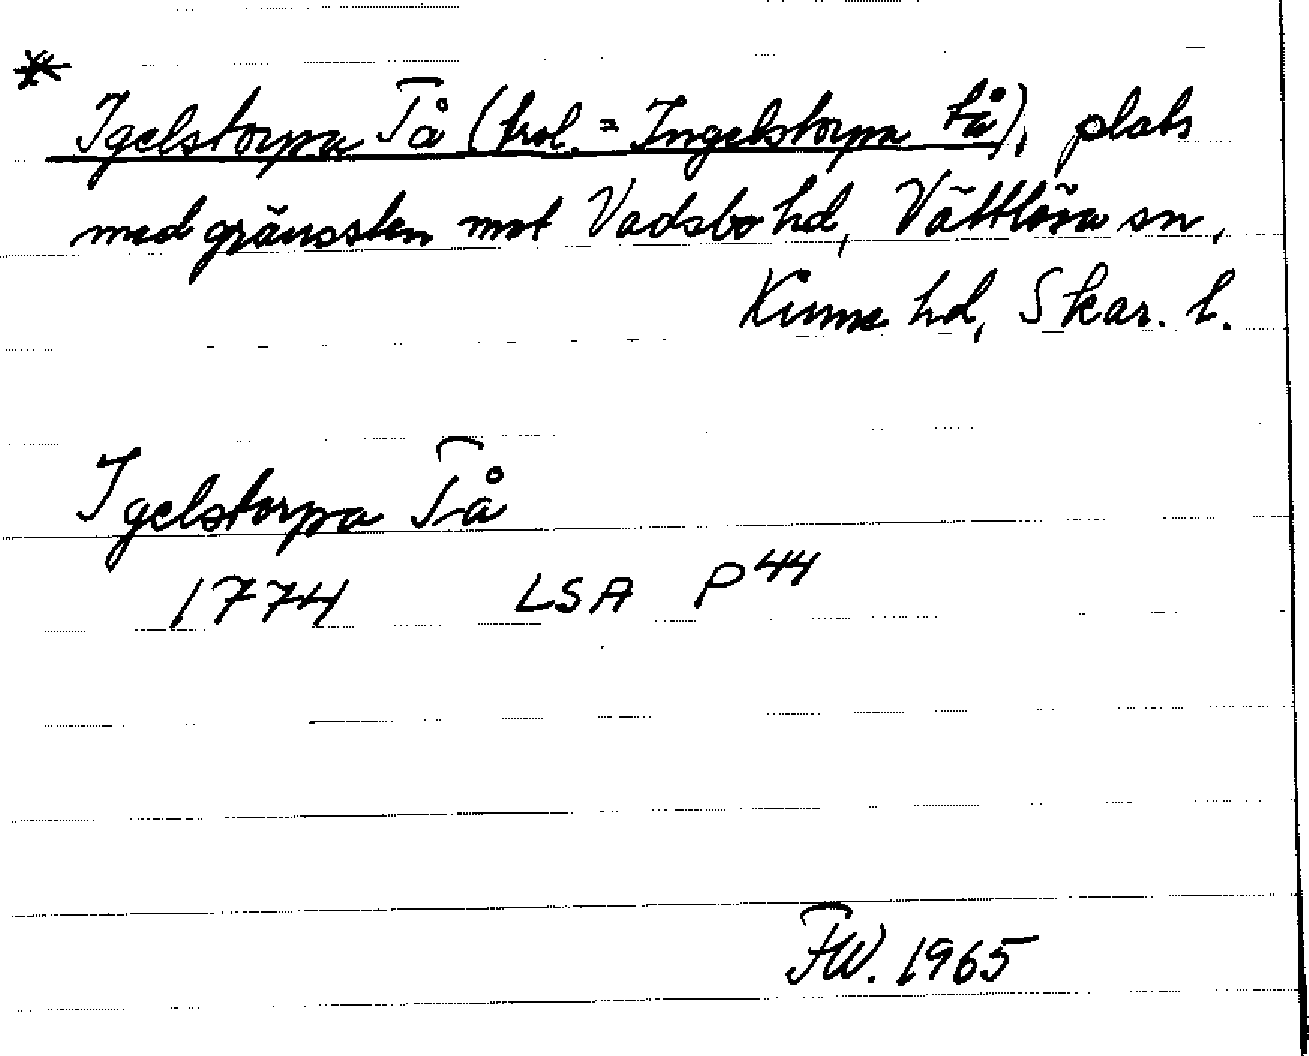 *
Igelstorpa Tå (trol. = Ingelstorpa tå), plats
med gränssten mot Vadsbo hd, Vättlösa sn,
Kinne hd, Skar. l.
Igelstorpa Tå
1774 LSA P 44
FW. 1965